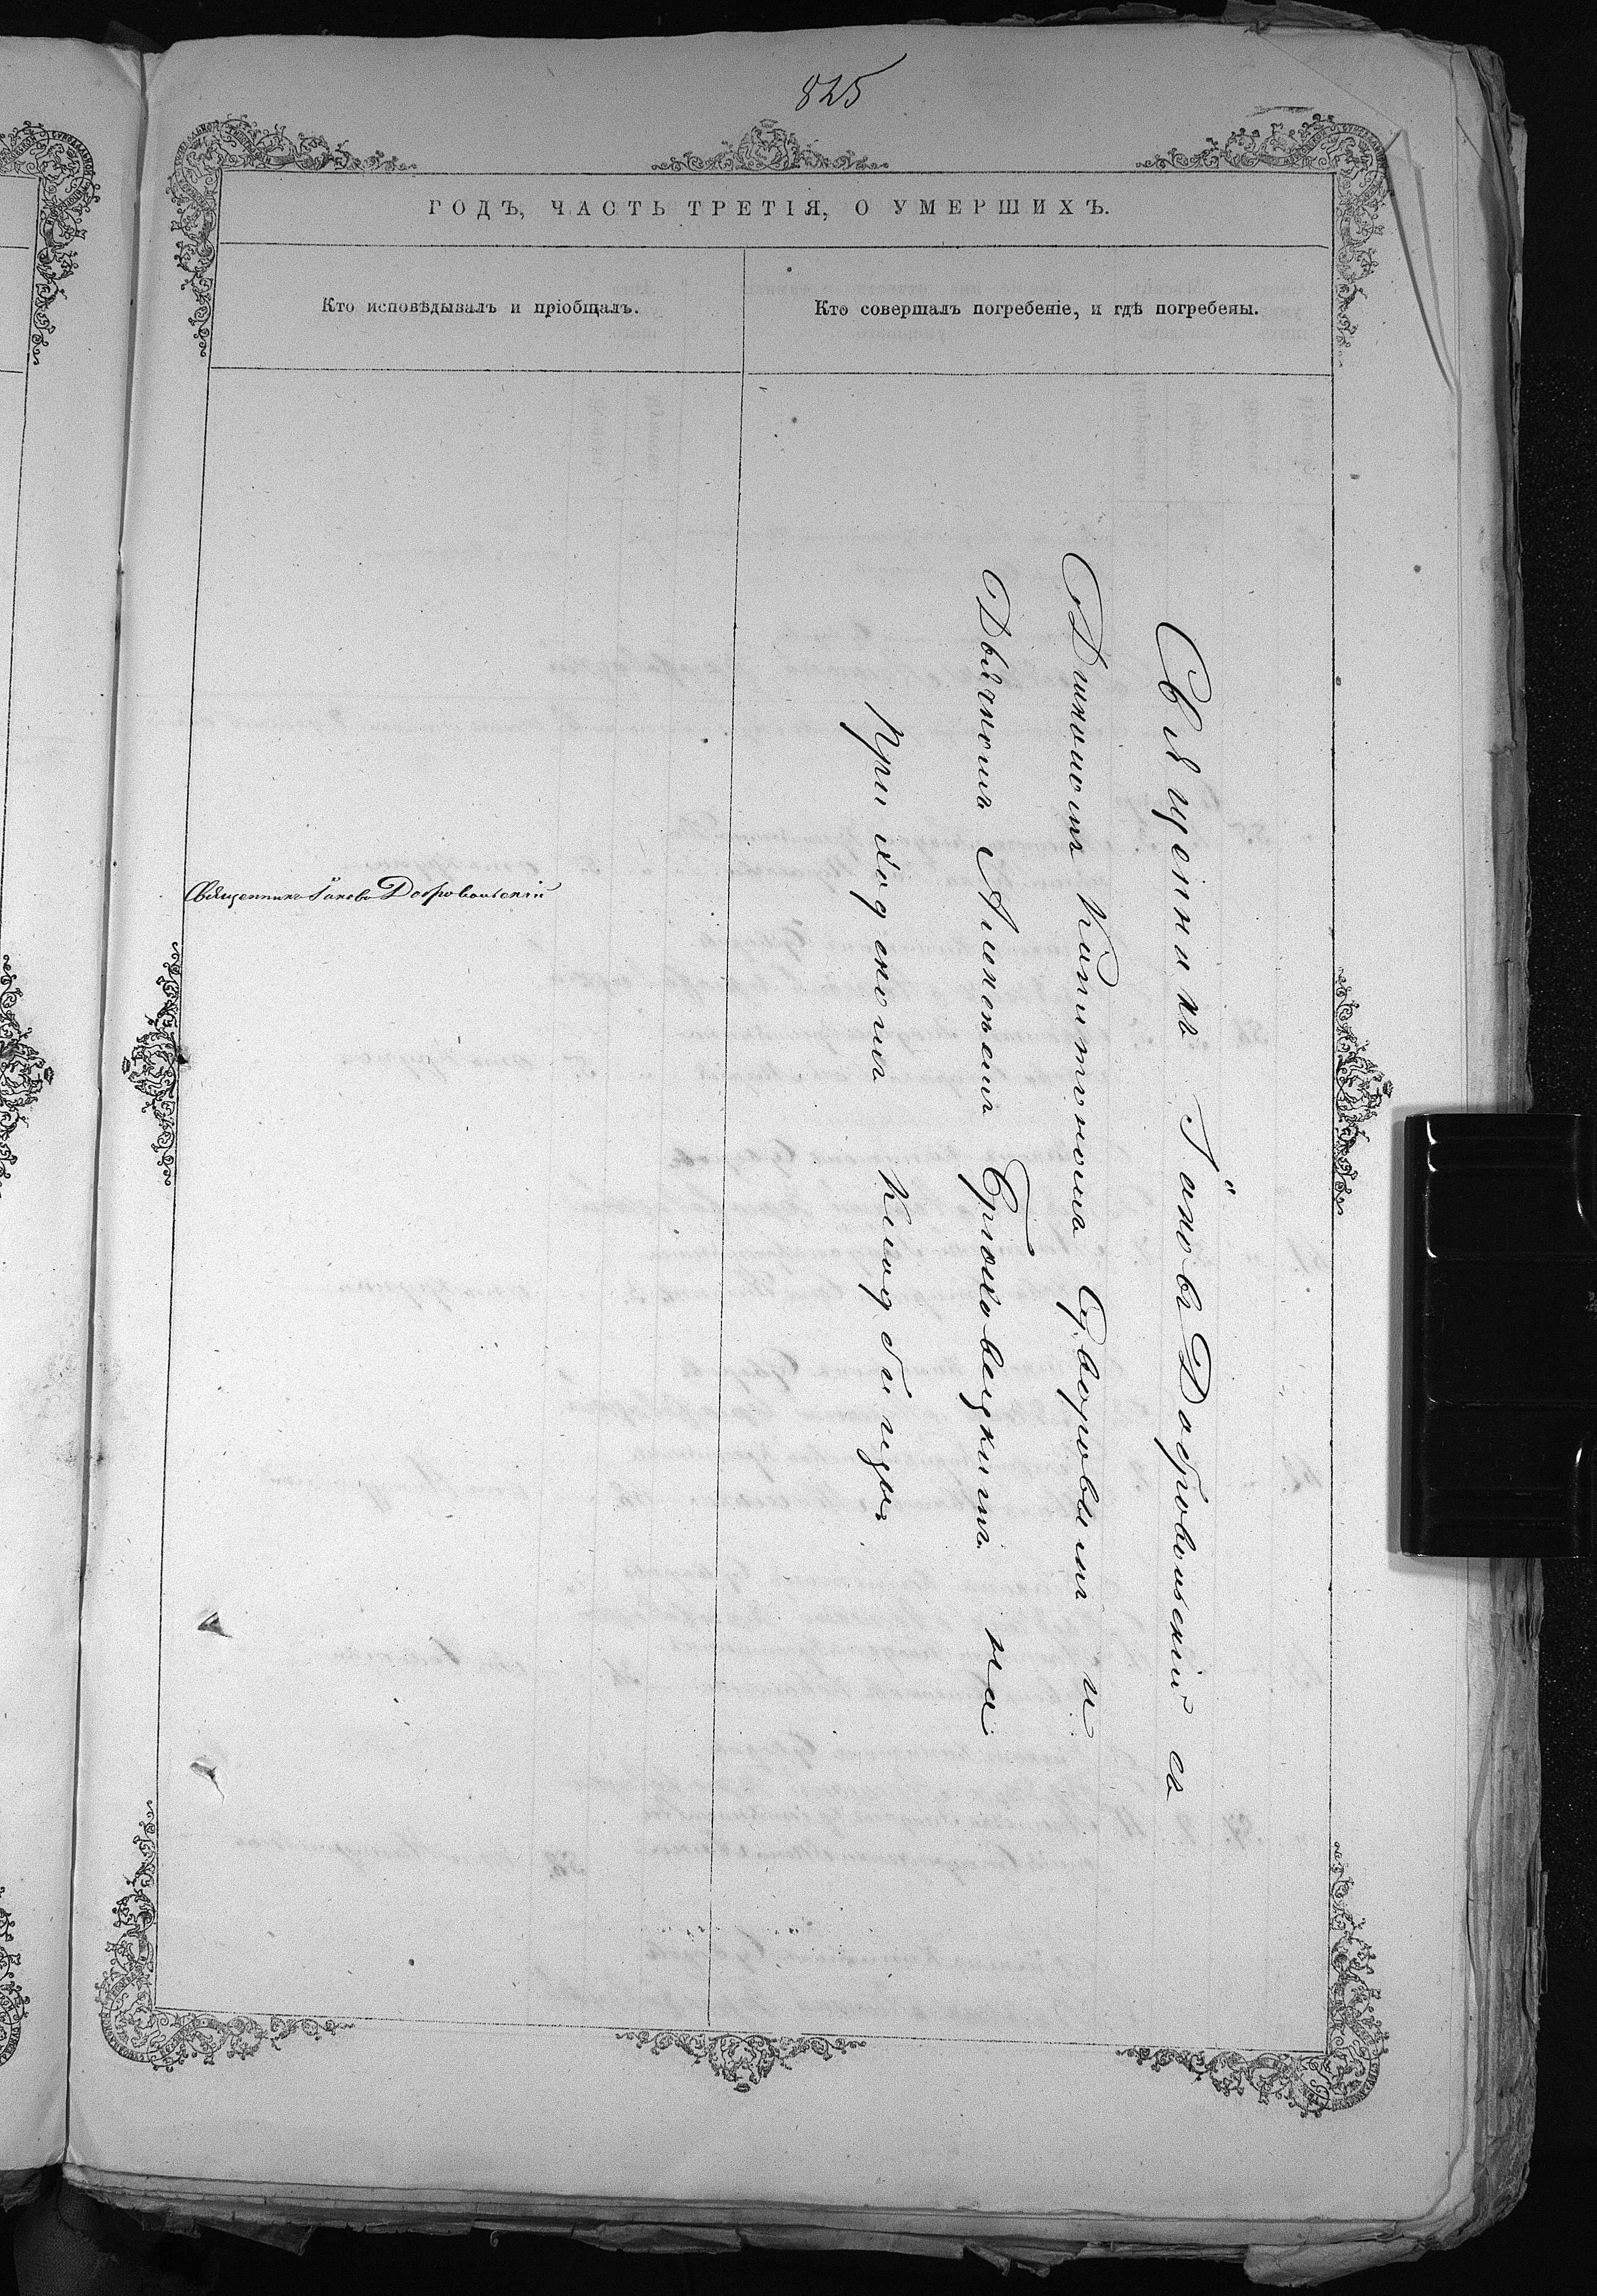 825
ГОДЪ, ЧАСТЬ ТРЕТІЯ, О УМЕРШИХЪ.
Кто исповѣдывалъ и пріобщалъ.
Кто совершалъ погребеніе, и гдѣ погребены.
Священникъ Іаковъ Добровольскій
Священникъ Іаковъ Добровольскій съ
Дьякономъ Капитономъ Суворовымъ и
Дьячкомъ Алексѣемъ Ерюковецкимъ на
Приходскомъ кладбищѣ